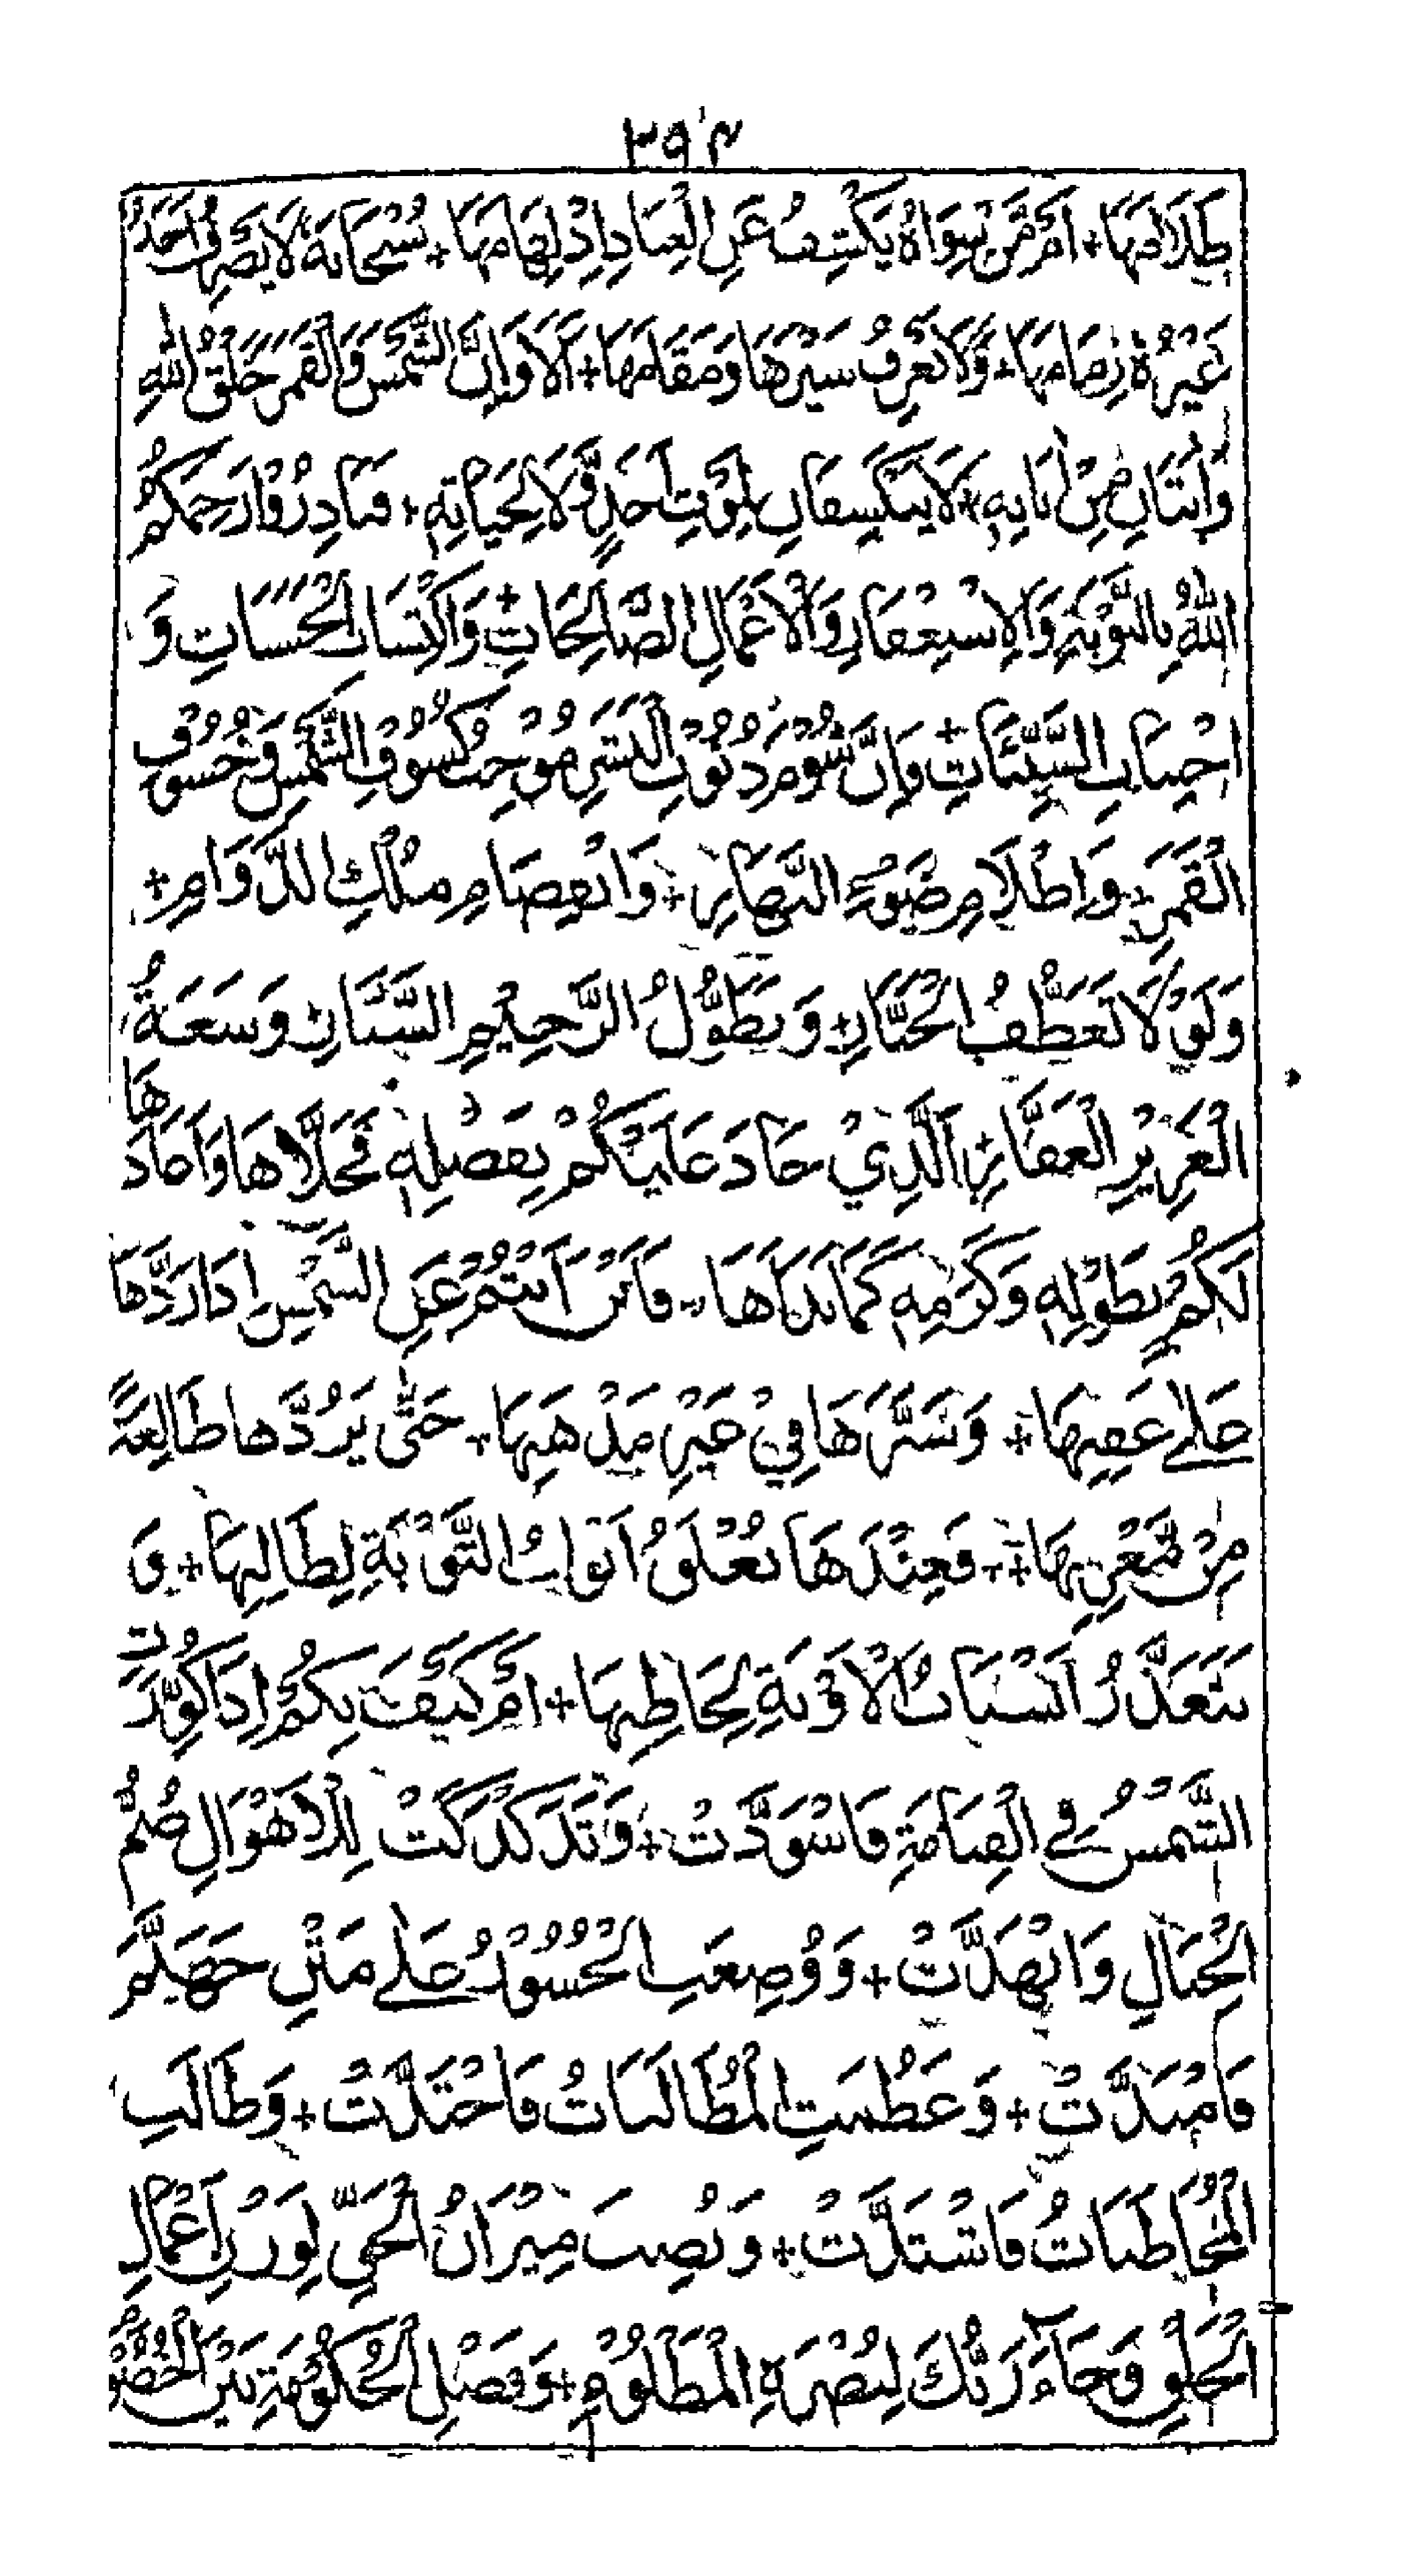 ٣٩٢
ظَلَامَهَا + اَمْ مَّنْ سِوَاهُ يَكْشِفُ عَنِ الْعِبَادِ اِدْلِهْمَامَهَا + سُبْحَانَهُ لَا يُصَرِّفُ اَحَدٌ
غَيْرُهٗ زِمَامَهَا + وَلَا يَعْرِفُ سَيْرَهَا وَمَقَامَهَا + اَلَا وَاِنَّ الشَّمْسَ وَالْقَمَرَ خَلْقُ اللّٰهِ
وَاٰيَتَانِ مِنْ اٰيَاتِهٖ + لَا يَنْكَسِفَانِ لِمَوْتِ اَحَدٍ وَّلَا لِحَيَاتِهٖ + فَبَادِرُوْا رَحِمَكُمُ
اللّٰهُ بِالتَّوْبَةِ وَالْاِسْتِغْفَارِ وَالْاَعْمَالِ الصَّالِحَاتِ + وَاكْتِسَابِ الْحَسَنَاتِ وَ
اجْتِنَابِ السَّيِّئَاتِ + وَاِنَّ شُوْمَ ذُنُوْبِ الْبَشَرِ مُوْجِبُ كُسُوْفِ الشَّمْسِ وَخُسُوْفِ
الْقَمَرِ + وَاِظْلَامِ ضَوْءِ النَّهَارِ + وَانْفِصَامِ مُلْكِ الدَّوَامِ +
وَلَوْلَا تَعَطُّفُ الْجَبَّارِ + وَتَطَوُّلُ الرَّحِيْمِ السَّتَّارِ وَسَعَةُ
الْعَزِيْزِ الْغَفَّارِ + الَّذِيْ جَادَ عَلَيْكُمْ بِفَضْلِهٖ فَجَلَّاهَا وَاَعَادَهَا
لَكُمْ بِطَوْلِهٖ وَكَرَمِهٖ كَمَا بَدَاَهَا + فَاَيْنَ اَنْتُمْ عَنِ الشَّمْسِ اِذَا رَدَّهَا
عَلٰى عَقِبِهَا + وَسَيَّرَهَا فِيْ غَيْرِ مَذْهَبِهَا + حَتّٰى يَرُدَّهَا طَالِعَةً
مِنْ مَّغْرِبِهَا + فَعِنْدَهَا تُغْلَقُ اَبْوَابُ التَّوْبَةِ لِطَالِبِهَا + وَ
تَتَعَذَّرُ اَسْبَابُ الْاَوْبَةِ لِخَاطِبِهَا + اَمْ كَيْفَ بِكُمْ اِذَا كُوِّرَتِ
الشَّمْسُ فِي الْقِيَامَةِ فَاسْوَدَّتْ + وَتَدَكْدَكَتْ لِلْاَهْوَالِ صُمُّ
الْجِبَالِ وَانْهَدَّتْ + وَوُضِعَتِ الْجُسُوْرُ عَلٰى مَتْنِ جَهَنَّمَ
فَامْتَدَّتْ + وَعَظُمَتِ الْمُطَالَبَاتُ فَاحْتَدَّتْ + وَطَالَتِ
الْمُخَاطَبَاتُ فَاشْتَدَّتْ + وَنُصِبَ مِيْزَانُ الْحَقِّ لِوَزْنِ اَعْمَالِ
الْخَلْقِ وَجَاءَ رَبُّكَ لِنُصْرَةِ الْمَظْلُوْمِ + وَفَصْلِ الْحُكُوْمَةِ بَيْنَ الْخُصُوْمِ